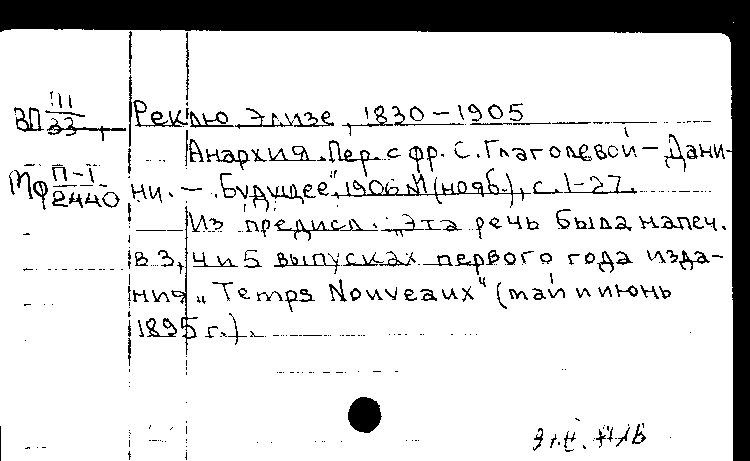 ВП III/33, Реклю, Элизе, 1830–1905
Анархия. Пер. с фр. С. Глаголевой – Дани-
Мф П-I/2440 ни. – "Будущее", 1906 (нояб.), с. 1–27.
Из предисл.: „Эта речь была напеч.
в 3, 4 и 5 выпусках первого года изда-
ния „Temps Nouveaux" (май и июнь
1895 г.).